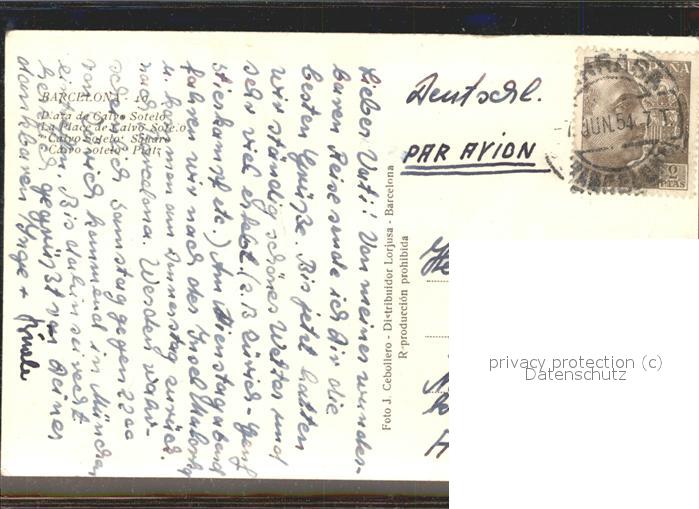 BARCELONA - 49
Plaza de Calvo Sotelo
La Place de Calvo Sotelo
"Calvo Sotelo" Square
"Calvo Sotelo" Platz
Lieber Vati! Von meiner wunder-
baren Reise sende ich dir die
besten Grüße. Bis jetzt hatten
wir ständig schönes Wetter und
sehr viel erlebt (z.B. Zürich - Genf
Stierkampf etc.) Am Dienstagabend
fahren wir nach der Insel Mallorca
u. kommen am Donnerstag zurück
nach Barcelona. Werden wahr-
scheinlich Samstag gegen 22 00
von Zürich kommend in München
sein. Bis dahin sei recht
herzlich gegrüßt von deiner
dankbaren Inge +
Foto J. Cebollero - Distribuidor Lorjusa - Barcelona
Reproducción prohibida
Deutschl.
PAR AVION
JUN. 54
2
PTAS
privacy protection (c)
Datenschutz